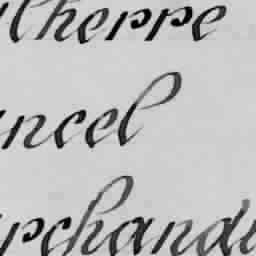 lheppe
ncel
rchand